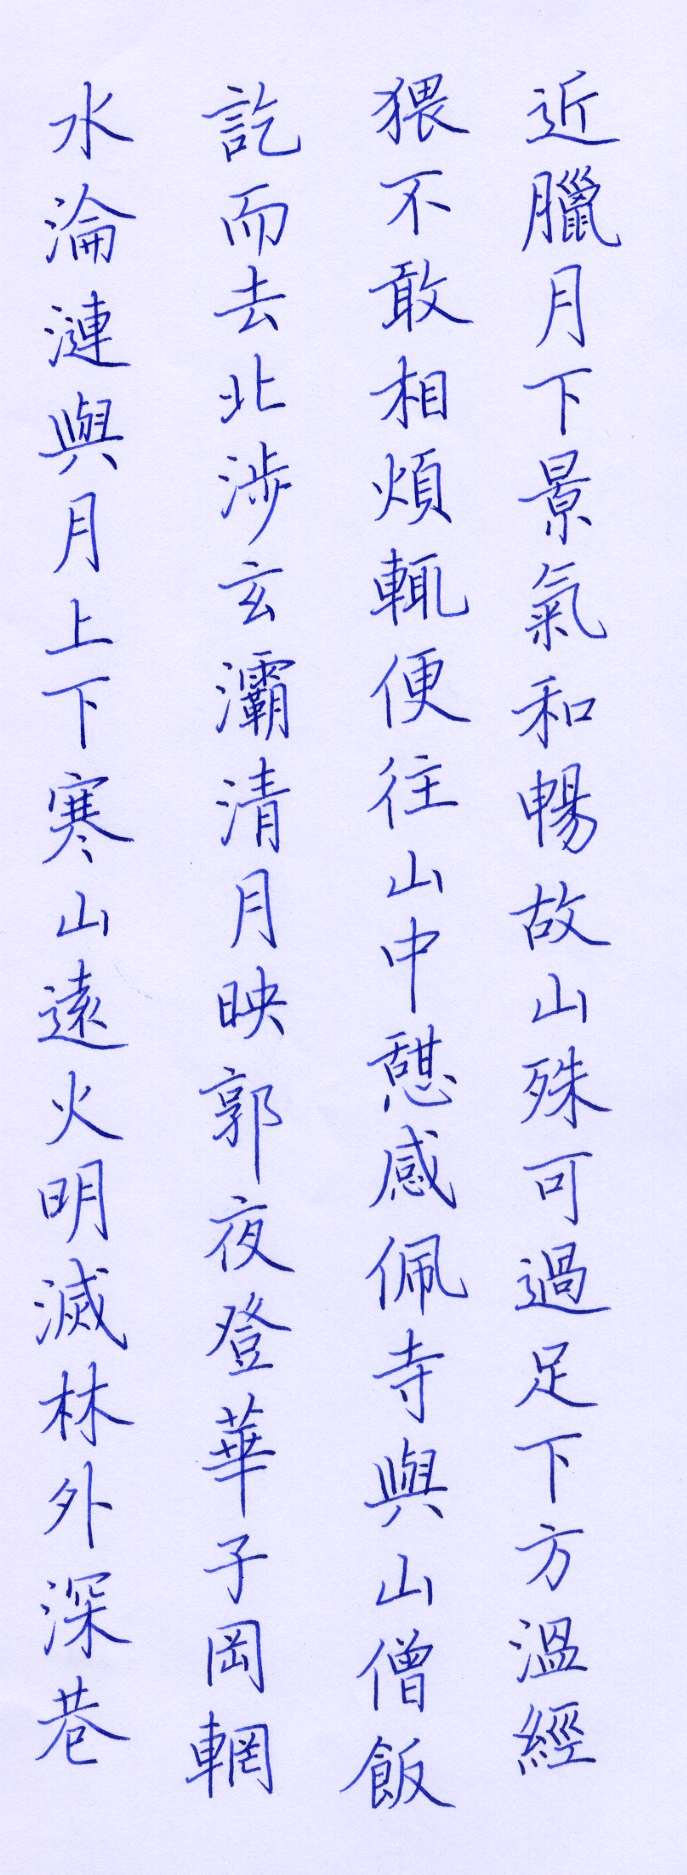 近臘月下景氣和暢故山殊可過足下方溫經
猥不敢相煩輒便往山中憇感佩寺與山僧飯
訖而去北涉玄灞清月映郭夜登華子岡輞
水淪漣與月上下寒山遠火明滅林外深巷